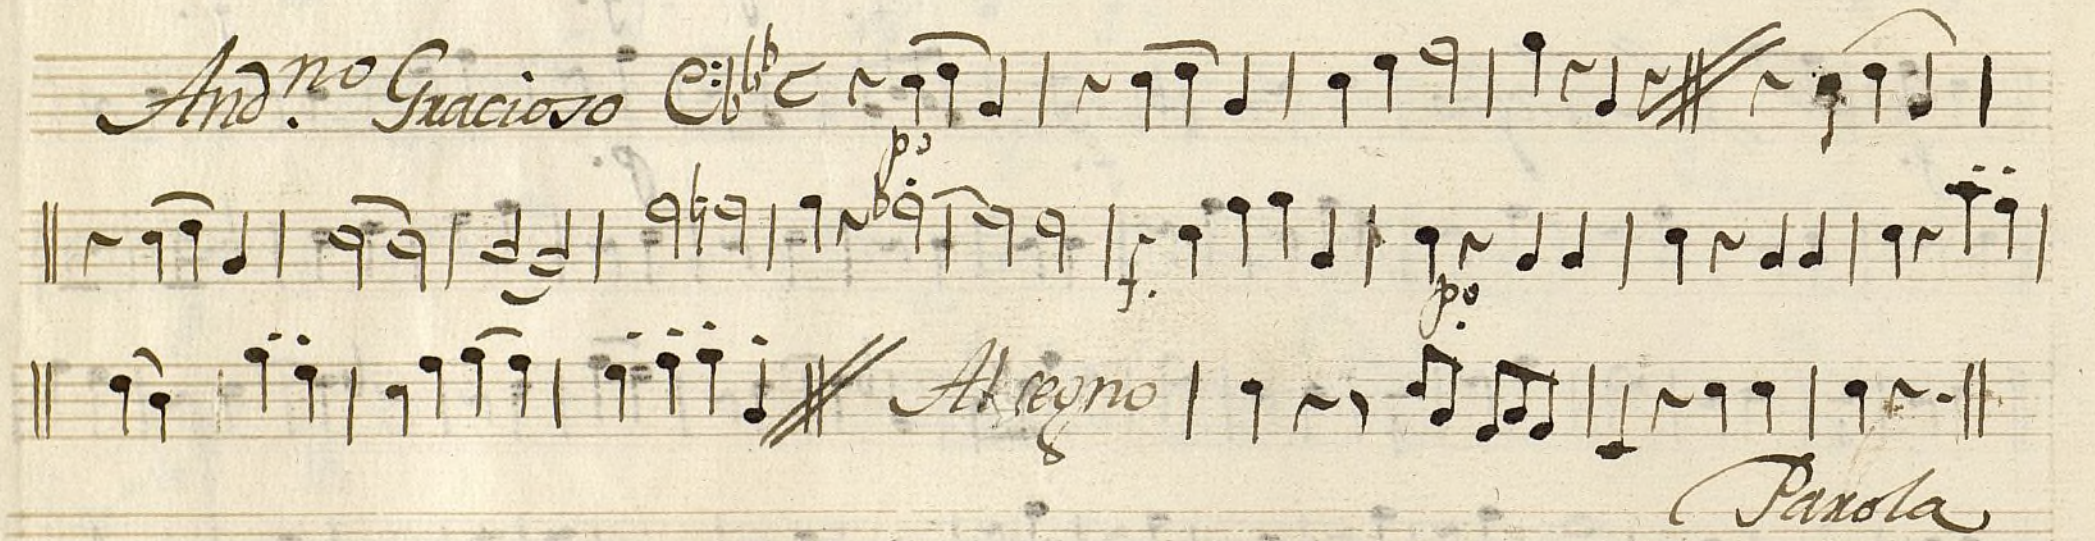 And.no Gracioso
po
f. po
Al segno
Parola